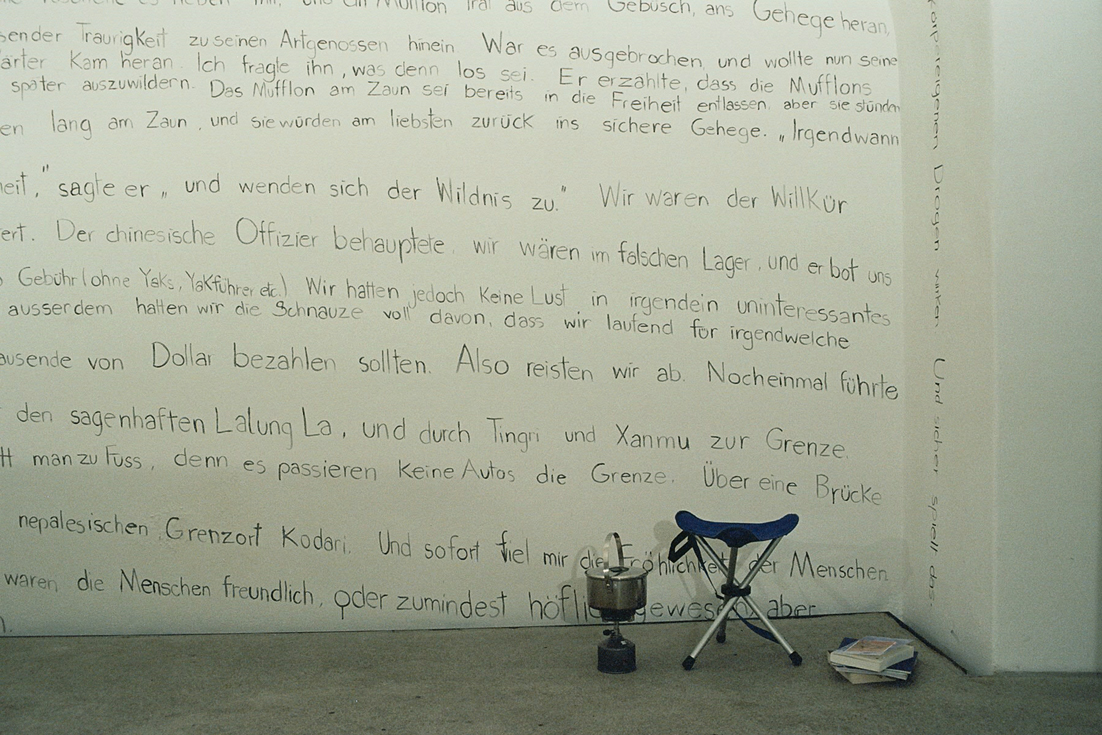 es neben mir, und ein Mufflon trat aus dem Gebüsch, ans Gehege heran,
sender Traurigkeit zu seinen Artgenossen hinein. War es ausgebrochen und wollte nun seine
ärter Kam heran. Ich fragte ihn, was denn los sei. Er erzählte, dass die Mufflons
später auszuwildern. Das Mufflon am Zaun sei bereits in die Freiheit entlassen, aber sie stünden
en lang am Zaun, und sie würden am liebsten zurück ins sichere Gehege. „Irgendwann
heit," sagte er „ und wenden sich der Wildnis zu." Wir waren der WillKür
ert. Der chinesische Offizier behauptete, wir wären im falschen Lager, und er bot uns
Gebühr (ohne Yaks, YaKführer etc.) Wir hatten jedoch Keine Lust in irgendein uninteressantes
ausserdem hatten wir die Schnauze voll davon, dass wir laufend für irgendwelche
ausende von Dollar bezahlen sollten. Also reisten wir ab. Nocheinmal führte
den sagenhaften Lalung La, und durch Tingri und Xanmu zur Grenze.
man zu Fuss, denn es passieren Keine Autos die Grenze. Über eine Brücke
nepalesischen Grenzort Kodari. Und sofort fiel mir die Fröhlichkeit der Menschen
waren die Menschen freundlich, oder zumindest höflich gewesen, aber
Drogen Und sicher spielt das